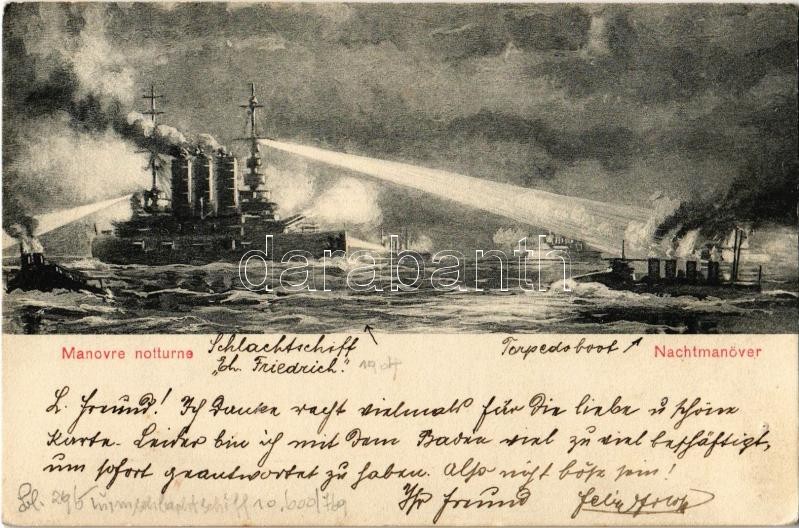 darabanth
Manovre notturne
Schlachtschiff
"Eh. Friedrich." 1904
Torpedoboot
Nachtmanöver
L. Freund! Ich Danke recht vielmals für Die liebe u schöne
Karte. Leider bin ich mit Dem Baden viel zu viel beschäftigt,
um sofort geantwortet zu haben. Also nicht böse sein!
Ihr Freund Felix
Turmschlachtschiff 10.600/769